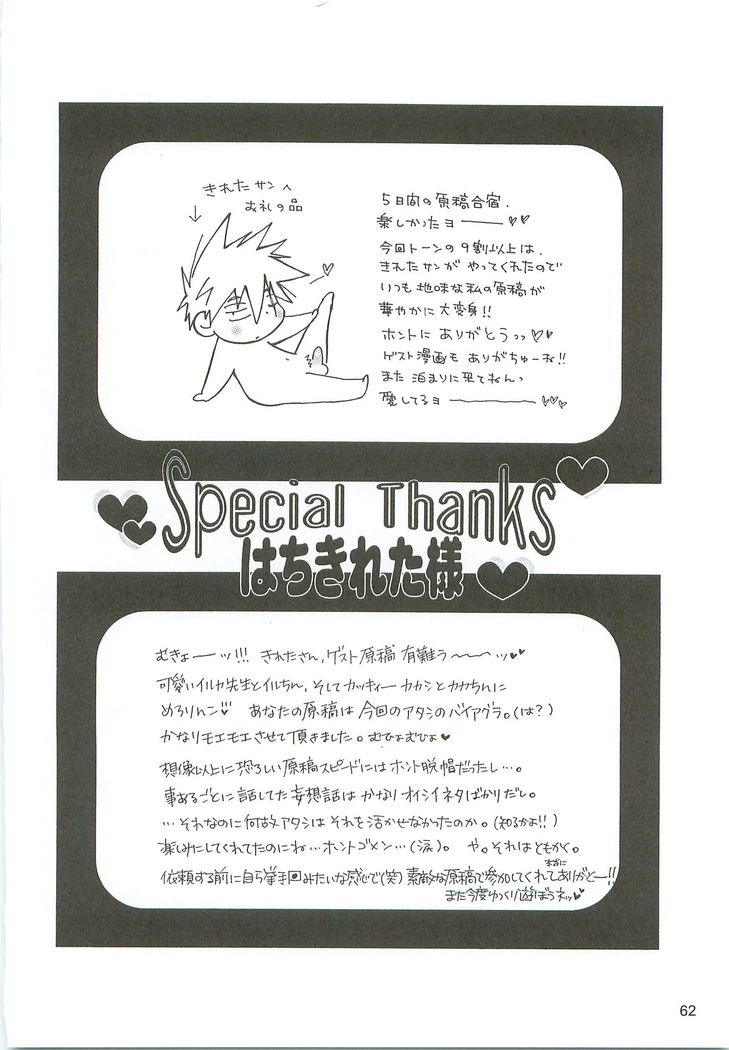 きれたサンへ
お礼の品
5日間の原稿合宿、
楽しかったヨー――♥♥
今回トーンの9割以上は、
きれたサンが やってくれたので
いつも 地味な私の原稿が
華やかに 大変身!!
ホントに ありがとうっっ♡♡
ゲスト漫画も ありがちゅーね!!
また 泊まりに 来てねんっ
愛してるヨ ――――♡♡♡
Special Thanks
はちきれた様
むきょーーッ!!! きれたさん、ゲスト原稿 有難う〜〜〜ッ♥♥
可愛いイルカ先生とイルちん、そしてカッキィーカカシとカカちんに
めろりんこ♡ あなたの原稿は今回のアタシのバイアグラ。(は?)
かなりモエモエさせて頂きました。むひょむひょ♥
想像以上に恐ろしい原稿スピードにはホント脱帽だったし…。
事あるごとに話してた妄想話はかなりオイシイネタばかりだし。
…それなのに何故アタシはそれを活かせなかったのか。(知るかよ!!)
楽しみにしてくれてたのにね…ホントゴメン…(涙)。 や。それはともかく。
依頼する前に自ら挙手回みたいな感じで(笑)素敵な原稿で参加してくれてありがとー!!
また今度ゆっくり遊ぼうネッ♥
62